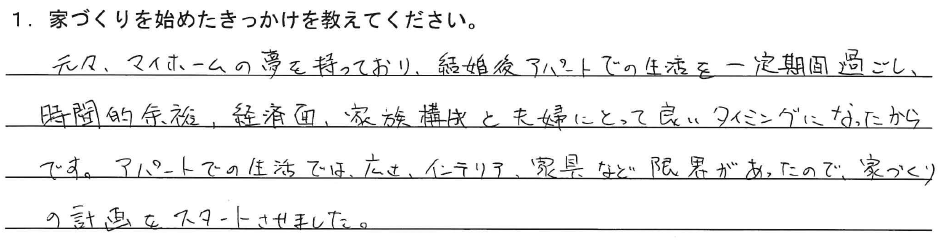 1. 家づくりを始めたきっかけを教えてください。
元々、マイホームの夢を持っており、結婚後アパートでの生活を一定期間過ごし、
時間的余裕、経済面、家族構成と夫婦にとって良いタイミングになったから
です。アパートでの生活では、広さ、インテリア、家具など限界があったので、家づくり
の計画をスタートさせました。